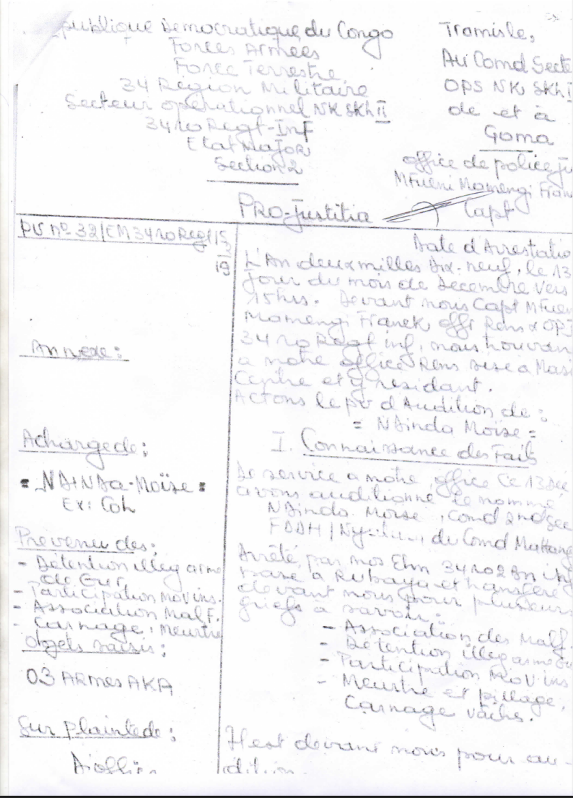 République Démocratique du Congo
Forces Armées
Force Terrestre
34 Région Militaire
Secteur opérationnel NK SKh II
3420 Regt-Inf
Etat Major
Section 2
Tromisle,
Au Comd Secte
OPS NK SKh I
de et à
Goma
office de police ju
Momengi Fran
Capt
PRO-Justitia
PV n° 32/CM 3420 Regt 15
19
Annexe:
A charge de:
= NDINDA-Moïse =
Ex: Coh
Prévenu des:
- Détention illeg arme
de Gur,
- Participation Mov ins.
- Association Malf.
- Carnage, Meurtre
objets saisis:
03 ARMES AKA
Sur plainte de:
Date d'Arrestatio
L'An deux milles dix-neuf, le 13
Jour du mois de Décembre vers
15hrs. Devant nous Capt
Momengi Franck, offr Rens & OPJ
3420 Regt inf, nous trouvan
a notre office Rens sise a Mas
Centre et y résidant.
Actons le pv d'Audition de:
= NDinda Moïse =
I. Connaissance des Faits
De service a notre office ce 13 Dec
avons auditionné le nommé
NDinda Moïse, Cond 2nd Sec
du Comd
Arrêté par nos Elm 3420 2
base a Rubaya et transféré
devant nous pour plusieurs
griefs a savoir:
- Association des Malf.
- Détention illeg arme
- Participation Mov ins
- Meurtre et pillage,
Carnage vaches.
Il est devant nous pour au-
dition.